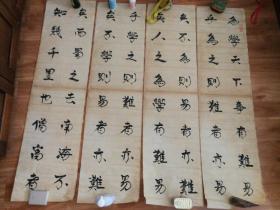 為學天下事有難易
乎為之則難者亦易
矣不為則易者亦難
矣人之為學有難易
乎學之則難者亦易
矣不學則易者亦難
矣西蜀之去南海不
知幾千里也僧富者